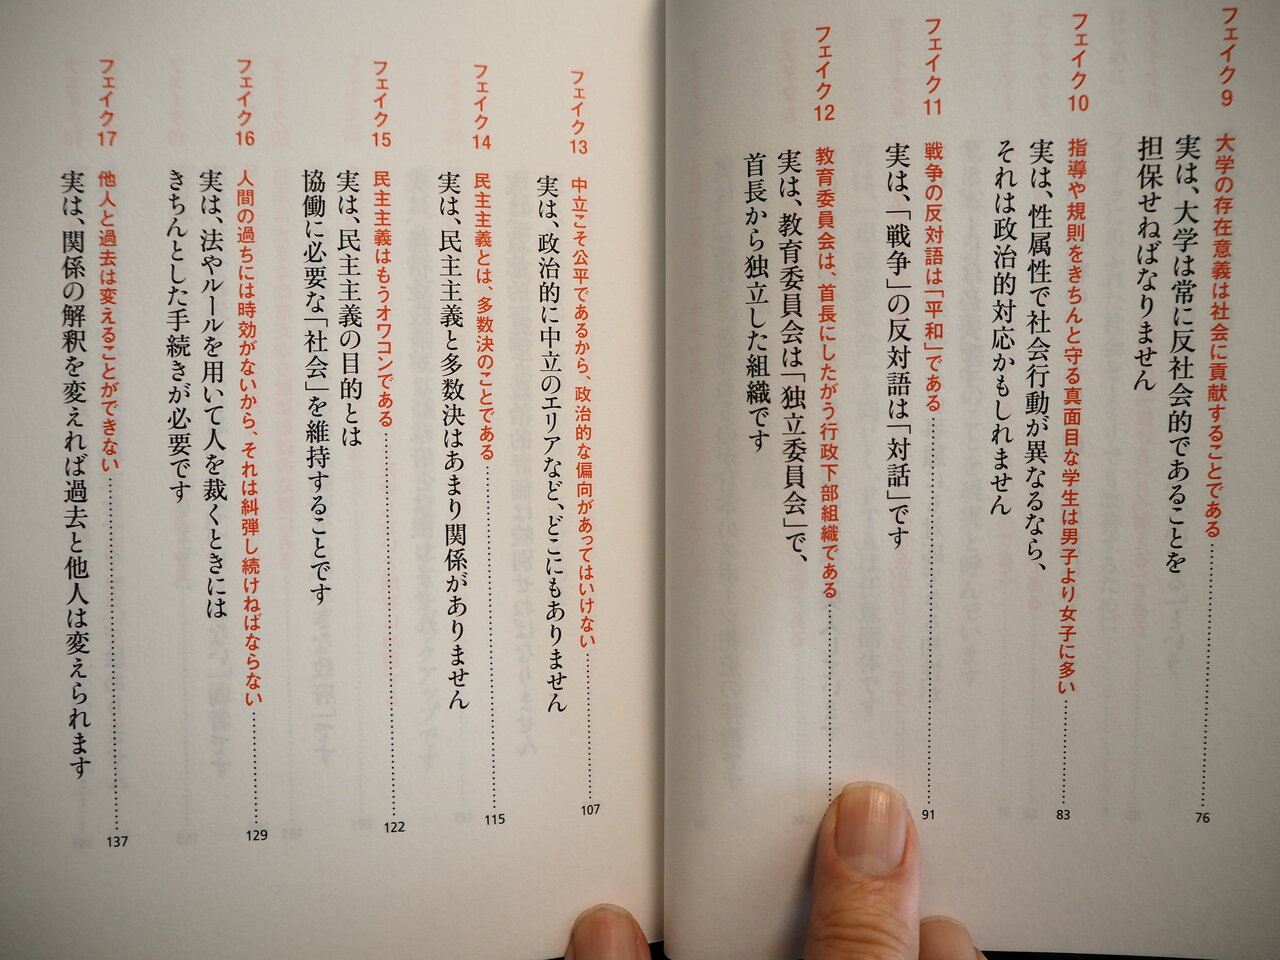 フェイク9 大学の存在意義は社会に貢献することである……76
実は、大学は常に反社会的であることを
担保せねばなりません
フェイク10 指導や規則をきちんと守る真面目な学生は男子より女子に多い……83
実は、性属性で社会行動が異なるなら、
それは政治的対応かもしれません
フェイク11 戦争の反対語は「平和」である……91
実は、「戦争」の反対語は「対話」です
フェイク12 教育委員会は、首長にしたがう行政下部組織である……
実は、教育委員会は「独立委員会」で、
首長から独立した組織です
フェイク13 中立こそ公平であるから、政治的な偏向があってはいけない……107
実は、政治的に中立のエリアなど、どこにもありません
フェイク14 民主主義とは、多数決のことである……115
実は、民主主義と多数決はあまり関係がありません
フェイク15 民主主義はもうオワコンである……122
実は、民主主義の目的とは
協働に必要な「社会」を維持することです
フェイク16 人間の過ちには時効がないから、それは糾弾し続けねばならない……129
実は、法やルールを用いて人を裁くときには
きちんとした手続きが必要です
フェイク17 他人と過去は変えることができない……137
実は、関係の解釈を変えれば過去と他人は変えられます